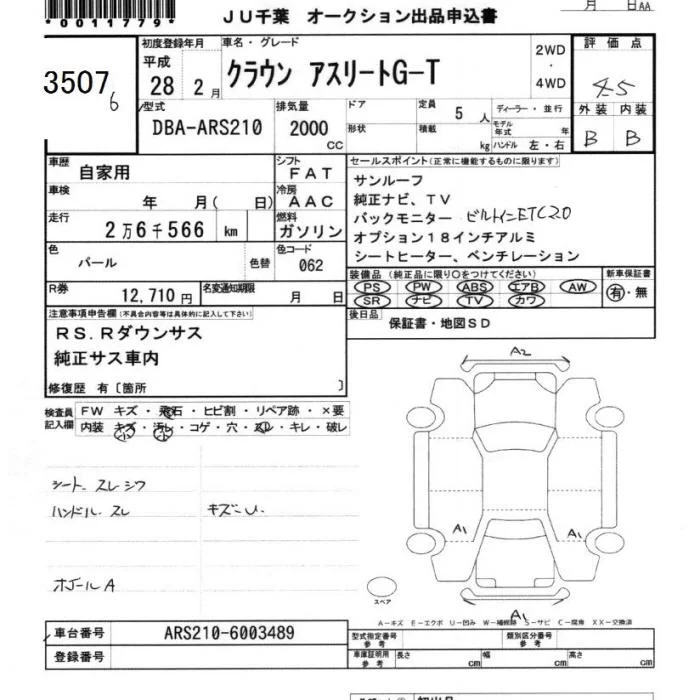 *0011779*
JU千葉 オークション出品申込書
月 日 AA
3507
6
初度登録年月
平成
28 2 月
車名・グレード
クラウン アスリートG-T
2WD
・
4WD
評価点
4.5
外装 内装
B B
型式
DBA-ARS210
排気量
2000
CC
ドア
形状
定員 5 人
積載 kg
ディーラー・並行
モデル年式 年
ハンドル 左・右
車歴
自家用
シフト
FAT
車検
年 月( 日)
冷房
AAC
走行
2万6千566 km
燃料
ガソリン
色
パール 色替
色コード
062
R券
12,710円
名変通知期限
月 日
セールスポイント(正常に機能するものに限ります)
サンルーフ
純正ナビ、TV
バックモニター ビルトインETC2.0
オプション18インチアルミ
シートヒーター、ベンチレーション
装備品 (純正品に限り○をつけてください)
PS PW ABS エアB AW
SR ナビ TV カワ
新車保証書
有・無
後日品
保証書・地図SD
注意事項申告欄(不具合内容等は具体的に記入して下さい)
RS.Rダウンサス
純正サス車内
修復歴 有〔箇所 〕
検査員記入欄
FW キズ・飛石・ヒビ割・リペア跡・×要
内装 キズ・汚レ・コゲ・穴・スレ・キレ・破レ
シート スレ シワ
ハンドル スレ
キズ・U
ホイールA
A2
A1
A1
A1
スペア
A-キズ E-エクボ U-凹み W-補修跡 S-サビ C-腐食 XX-交換済
車台番号
ARS210-6003489
登録番号
型式指定番号
参考
類別区分番号
参考
車庫証明用
参考
長さ cm
幅 cm
高さ cm